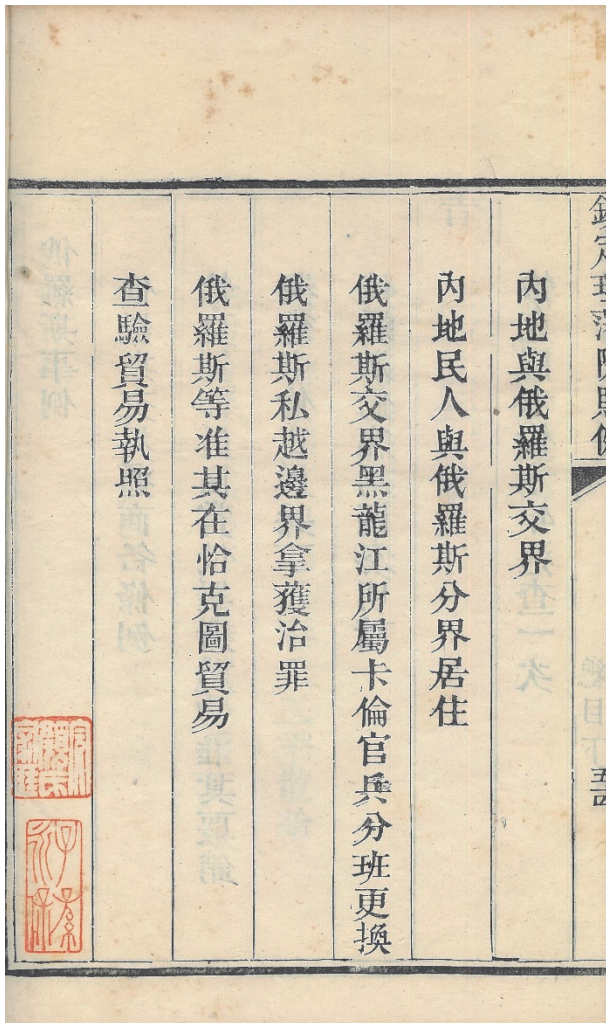 欽定理藩院則例
總目下
五十四
內地與俄羅斯交界
內地民人與俄羅斯分界居住
俄羅斯交界黑龍江所屬卡倫官兵分班更換
俄羅斯私越邊界拿獲治罪
俄羅斯等准其在恰克圖貿易
查驗貿易執照